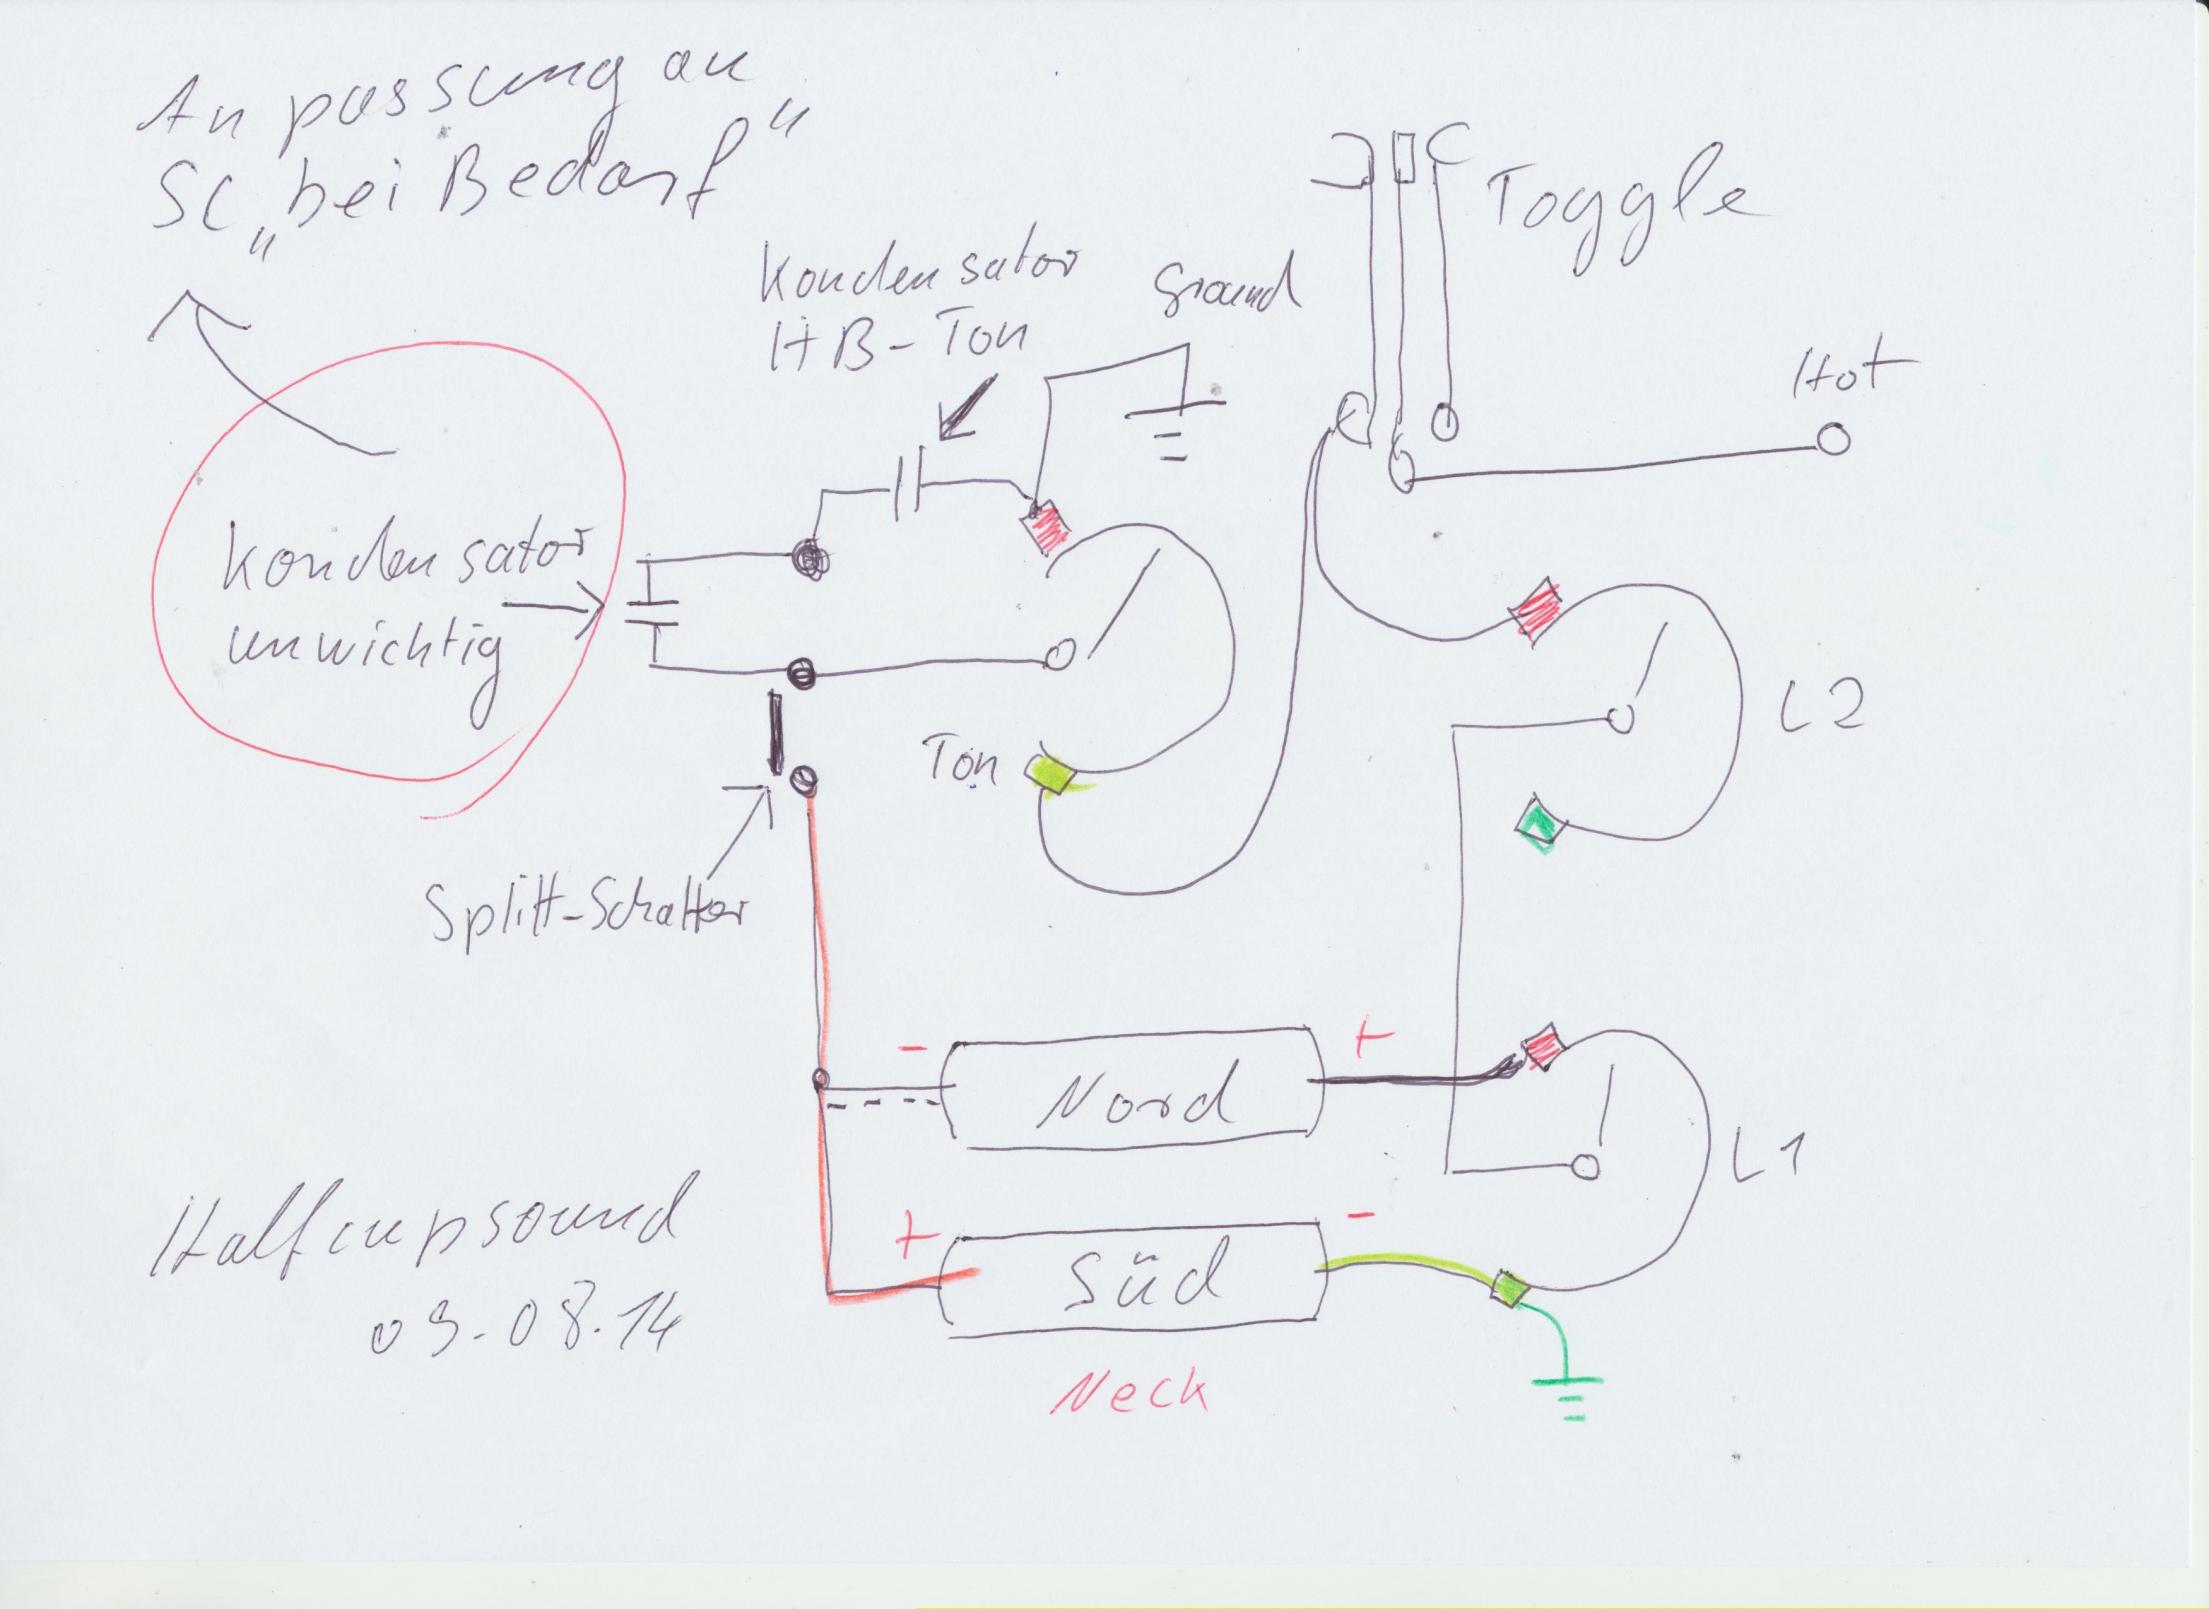 Anpassung an
SC „bei Bedarf"
Toggle
Kondensator
HB-Ton
Ground
Hot
Kondensator
unwichtig
L2
Ton
Splitt-Schalter
- +
Nord
L1
+ -
Süd
Halfcupsound
09.08.14
Neck